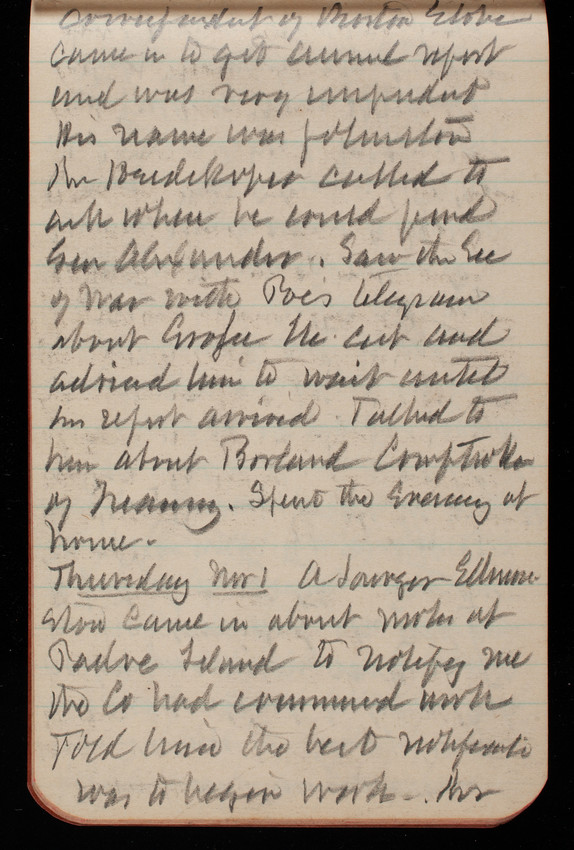 correspondent of Boston Globe
came in to get annual report
and was very impudent
His name was Johnston
Mr called to
ask where he could find
Gen Alexander. Saw the Sec
of War with Poe's telegram
about He and
advised him to wait until
his report arrived Talked to
him about Borland Comptroller
of Treasury. Spent the Evening at
home.
Thursday Nov 1 A
came in about work at
Padre Island to notify me
the Co had commenced work
Told him the best
was to begin work. Mr